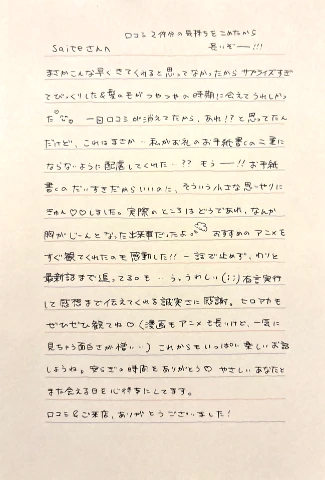 口コミ2件分の気持ちをこめたから
長いぞー!!!
saiteさんへ
まさかこんな早くきてくれると思ってなかったからサプライズすぎ
てびっくりした&髪の毛がつやつやの時期に会えてうれしかっ
た 一日口コミが消えてたから、あれ!?て思ってたん
だけど、これはまさか…私がお礼のお手紙書くの二重に
ならないように配慮してくれた…?? もうー!!お手紙
書くのだいすきだからいいのに、そういう小さな思いやりに
きゅん♡♡しました。実際のところはどうであれ、なんか
胸がじーんとなった出来事だったよ。 おすすめのアニメを
すぐ観てくれたのも感動した!!一話で止めず、わりと
最新話まで追ってるのも…う。うれしい(;;)有言実行
して感想まで伝えてくれる誠実さに感謝。ヒロアカも
ぜひぜひ観てね♡(漫画もアニメも長いけど、一気に
見ちゃう面白さが憎い…)これからもいっぱい楽しいお話
しようね。安らぎの時間をありがとう♡やさしいあなたと
また会える日を心待ちにしてます。
口コミ&ご来店、ありがとうございました!